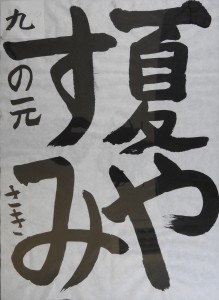 夏や
すみ
九の元
さき